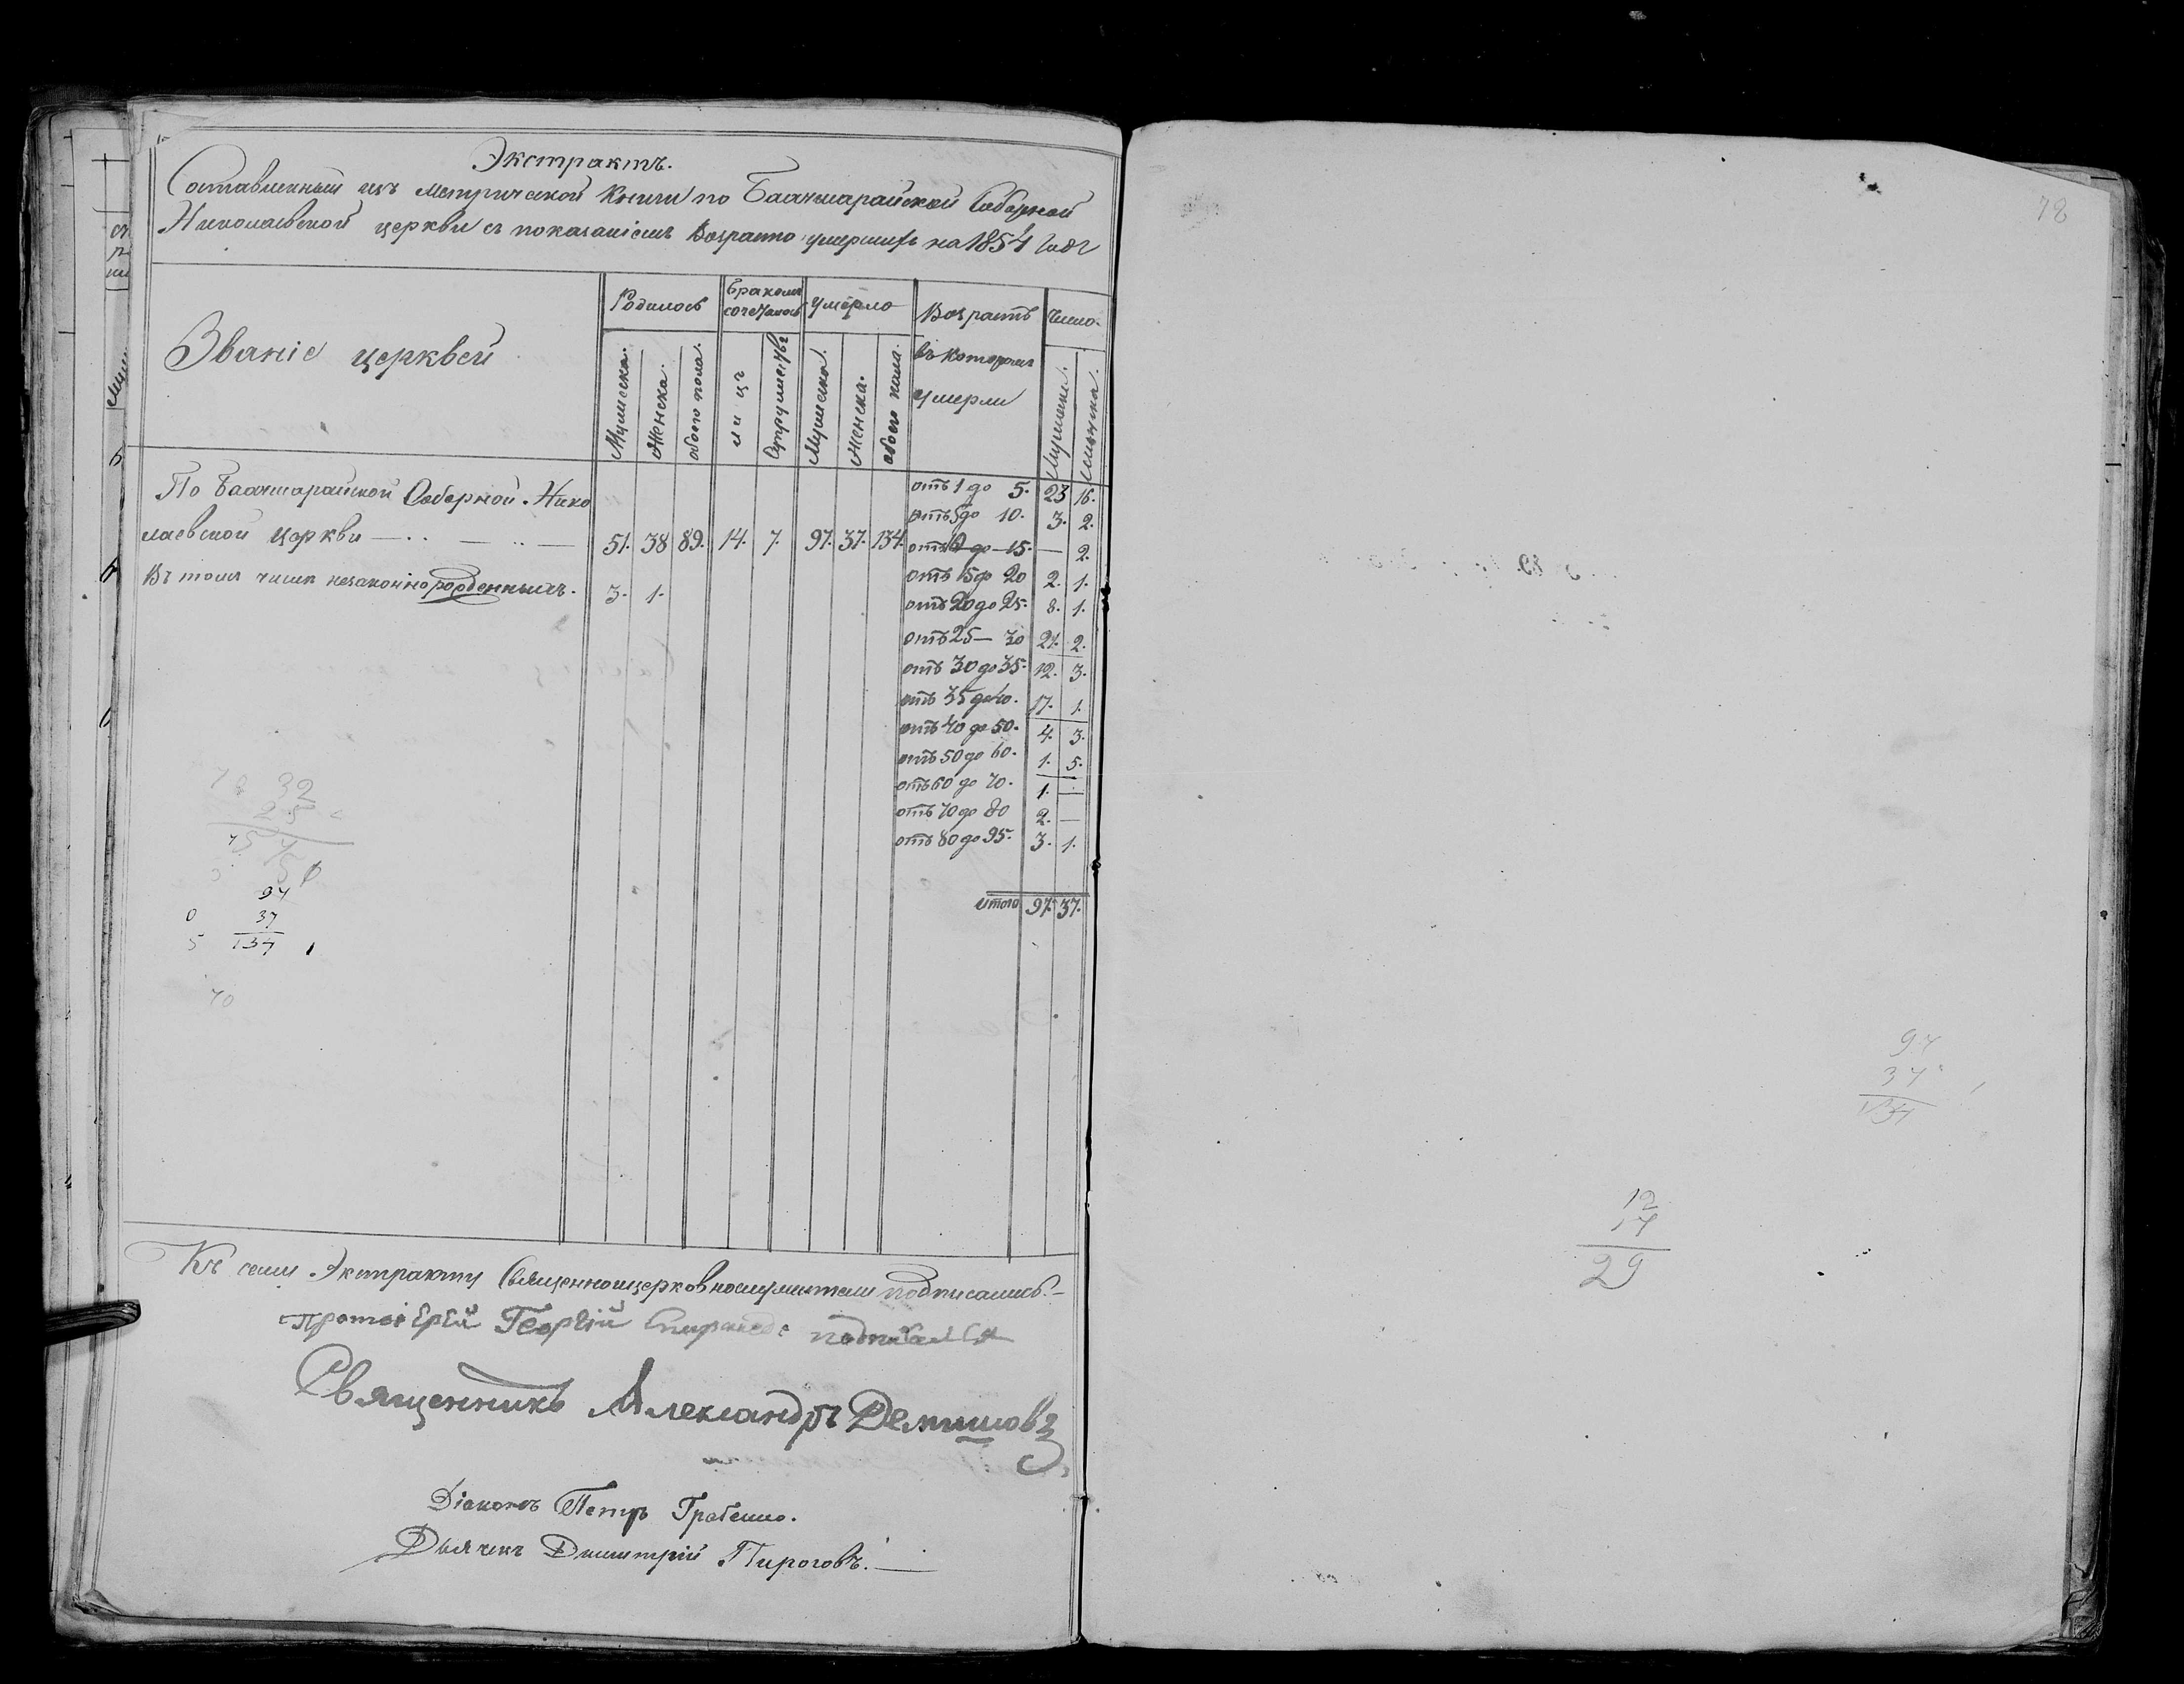 Экстрактъ.
Составленный изъ метрической Книги по Бахчисарайской Соборной
Николаевской церкви съ показаніемъ Возраста умершихъ на 1854 Годъ
Званіе церквей
Родилось
Бракомъ сочеталось
Умерло
Возрастъ въ которомъ умерли
Число.
Мужеска.
Женска.
обоего пола.
лицъ
Супружествъ
Мужеска.
Женска.
обоего пола.
Мужеска.
Женска.
По Бахчисарайской Соборной Нико
лаевской Церкви — 51. 38 89. 14. 7. 97. 37. 134.
Въ томъ числѣ незаконнорожденныхъ. 3. 1.
отъ 1 до 5. 23 16.
отъ 5 до 10. 3. 2.
отъ 10 до 15. — 2.
отъ 15 до 20 2. 1.
отъ 20 до 25. 8. 1.
отъ 25 — 30 21. 2.
отъ 30 до 35. 12. 3.
отъ 35 до 40. 17. 1.
отъ 40 до 50. 4. 3.
отъ 50 до 60. 1. 5.
отъ 60 до 70. 1. —
отъ 70 до 80 2. —
отъ 80 до 95. 3. 1.
Итого 97. 37.
32
25
97
37
134
70
Къ сему Экстракту Священноцерковнослужители подписались.
Протоіерей Георгій подписался
Священникъ Александръ Демишовъ
Діаконъ Петръ
Дьячекъ Димитрій Пироговъ.
78
97
37
134
12
17
29